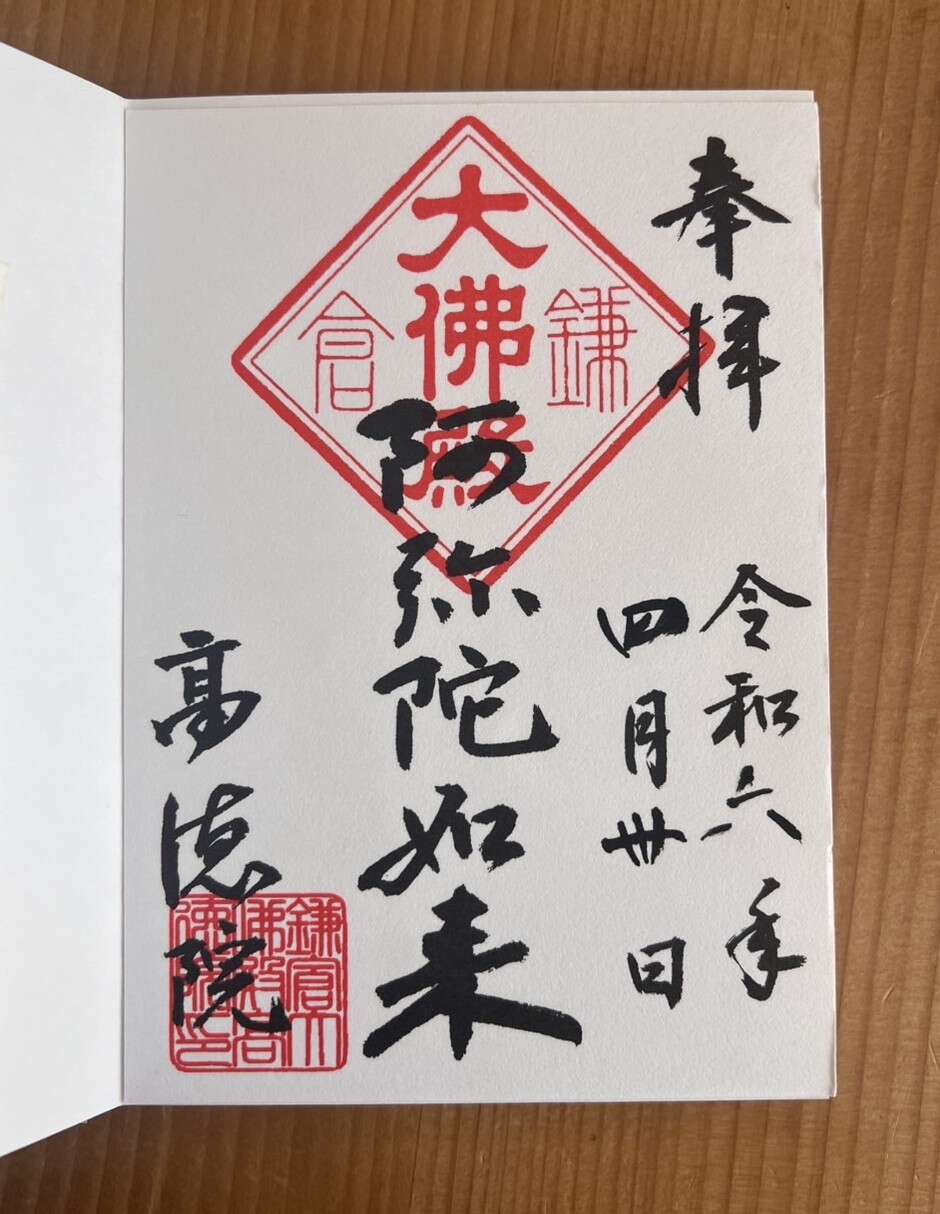 奉拝
令和六年
四月卅日
鎌倉
大佛殿
阿弥陀如来
高徳院
鎌倉大佛殿高徳院印